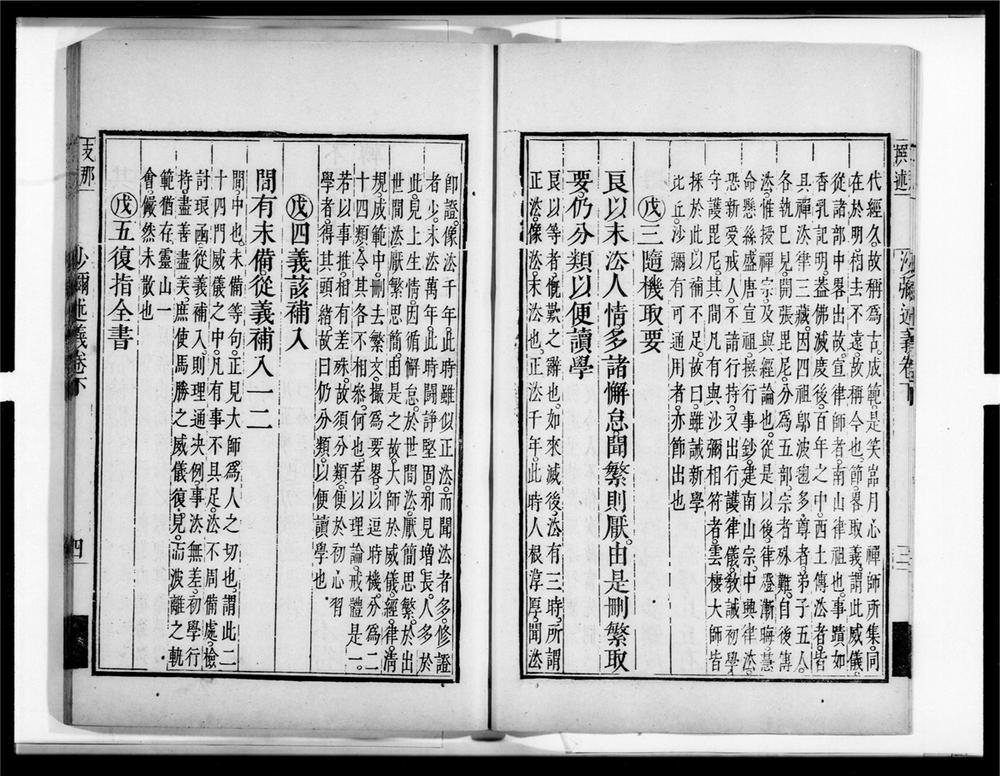 撰述
沙彌述義卷下
三
代經久故稱爲古成範是笑嵓月心禪師所集同
在於明相去不遠故稱今也節畧取義謂此威儀
從諸部中畧出故宣律師者南山律祖也事蹟如
香乳記明蓋佛滅度後百年之中西土傳法者皆
具禪法律三藏因四祖鄔波毱多尊者弟子五人
各執巳見開張毘尼分爲五部宗者殊難自後傳
法惟授禪宗及與經論也從是以後律澄漸晦慧
命懸絲盛唐宣祖撰行事鈔建南山宗中興律法
恐新受戒人不諳行持又出行護律儀敎誡初學
守護毘尼其間凡有與沙彌相符者雲棲大師皆
採於此以補不足故曰雖誡新學
比丘沙彌有可通用者亦節出也
戊三隨機取要
良以末法人情多諸懈怠聞繁則厭由是刪繁取
要仍分類以便讀學
良以等者慨歎之辭也如來滅後法有三時所謂
正法像法末法也正法千年此時人根淳厚聞法
卽證像法千年此時雖似正法而聞法者多修證
者少末法萬年此時鬪諍堅固邪見增長人多於
此見上生情因循懈怠於世間法厭簡思繁於出
世間法厭繁思簡由是之故大師於威儀經律清
規成範中刪去繁文撮爲要畧以逗時機分爲二
十四類令其各不相叅何也若以理論戒體是一
若以事推相有差殊故須分類便於初心習
學者得其頭緒故曰仍分類以便讀學也
戊四義該補入
間有未備從義補入一二
間中也未備等句正見大師爲人之切也謂此二
十四門威儀之中凡有事不具足法不周備處檢
討琅函從義補入則理通决例事法無差初學行
持盡善盡美庶使馬勝之威儀復見而波離之軌
範猶存靈山一
會儼然未散也
戊五復指全書
支那
沙彌述義卷下
四